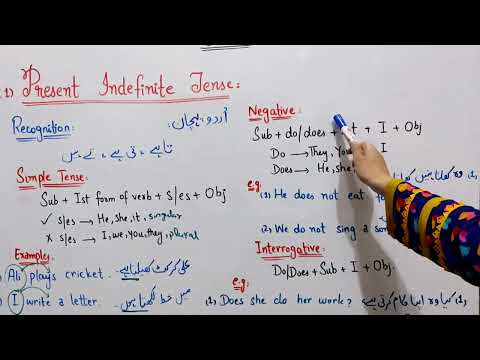 1) Present Indefinite Tense:
Recognition:
اُردو پہچان:
تا ہے ، تی ہے ، تے ہیں
Simple Tense:
Sub + Ist form of verb + s/es + Obj
✓ s/es → He, she, it, singular
× s/es → I, we, you, they, plural
Examples:
Ali plays cricket. علی کرکٹ کھیلتا ہے
I write a letter. میں خط لکھتا ہوں
Negative:
Sub + do/does + + I + Obj
Do → They, You I
Does → He, she
e.g:
(1) He does not eat
(2) We do not sing a son
Interrogative:
Do/Does + Sub + I + Obj.
e.g:
(1) Does she do her work? کیا وہ اپنا کام کرتی ہے